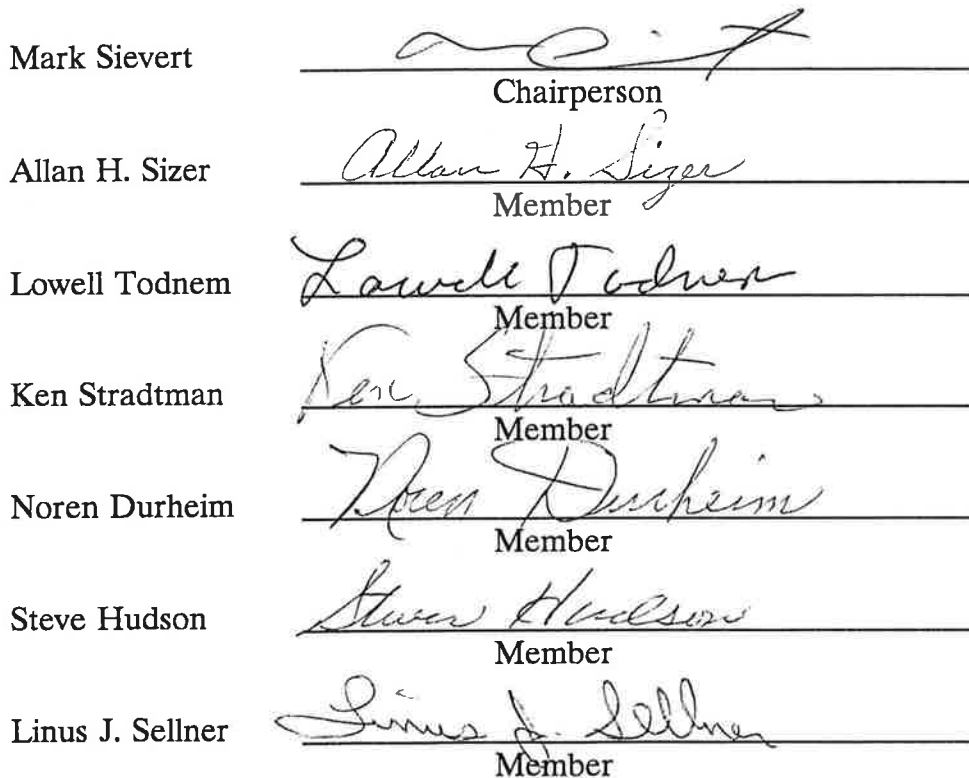 Mark Sievert
Chairperson
Allan H. Sizer Allan H. Sizer
Member
Lowell Todnem Lowell Todnem
Member
Ken Stradtman Ken Stradtman
Member
Noren Durheim Noren Durheim
Member
Steve Hudson Steven Hudson
Member
Linus J. Sellner Linus J. Sellner
Member